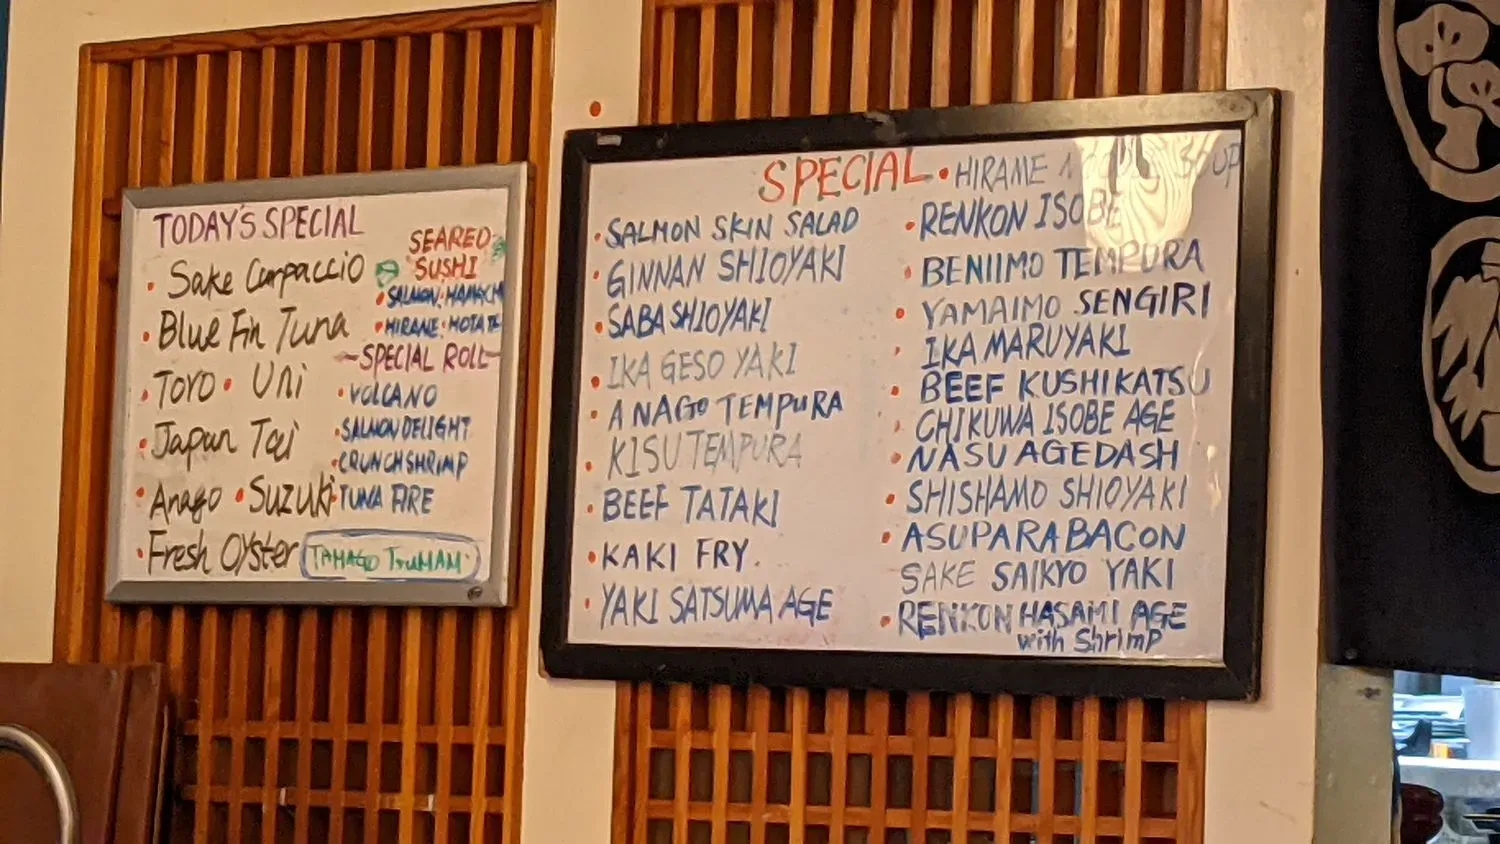 TODAY'S SPECIAL
• Sake Carpaccio
• Blue Fin Tuna
• Toro • Uni
• Japan Tai
• Anago • Suzuki
• Fresh Oyster
SEARED
SUSHI
• SALMON • HAMACHI
• HIRAME • HOTATE
-SPECIAL ROLL-
• VOLCANO
• SALMON DELIGHT
• CRUNCH SHRIMP
• TUNA FIRE
TAMAGO TSUMAMI
SPECIAL
• SALMON SKIN SALAD
• GINNAN SHIOYAKI
• SABA SHIOYAKI
• IKA GESO YAKI
• ANAGO TEMPURA
• KISU TEMPURA
• BEEF TATAKI
• KAKI FRY.
• YAKI SATSUMA AGE
• HIRAME SOUP
• RENKON ISOBE
• BENIIMO TEMPURA
• YAMAIMO SENGIRI
• IKA MARUYAKI
• BEEF KUSHIKATSU
• CHIKUWA ISOBE AGE
• NASU AGEDASHI
• SHISHAMO SHIOYAKI
• ASUPARA BACON
SAKE SAIKYO YAKI
• RENKON HASAMI AGE
with Shrimp